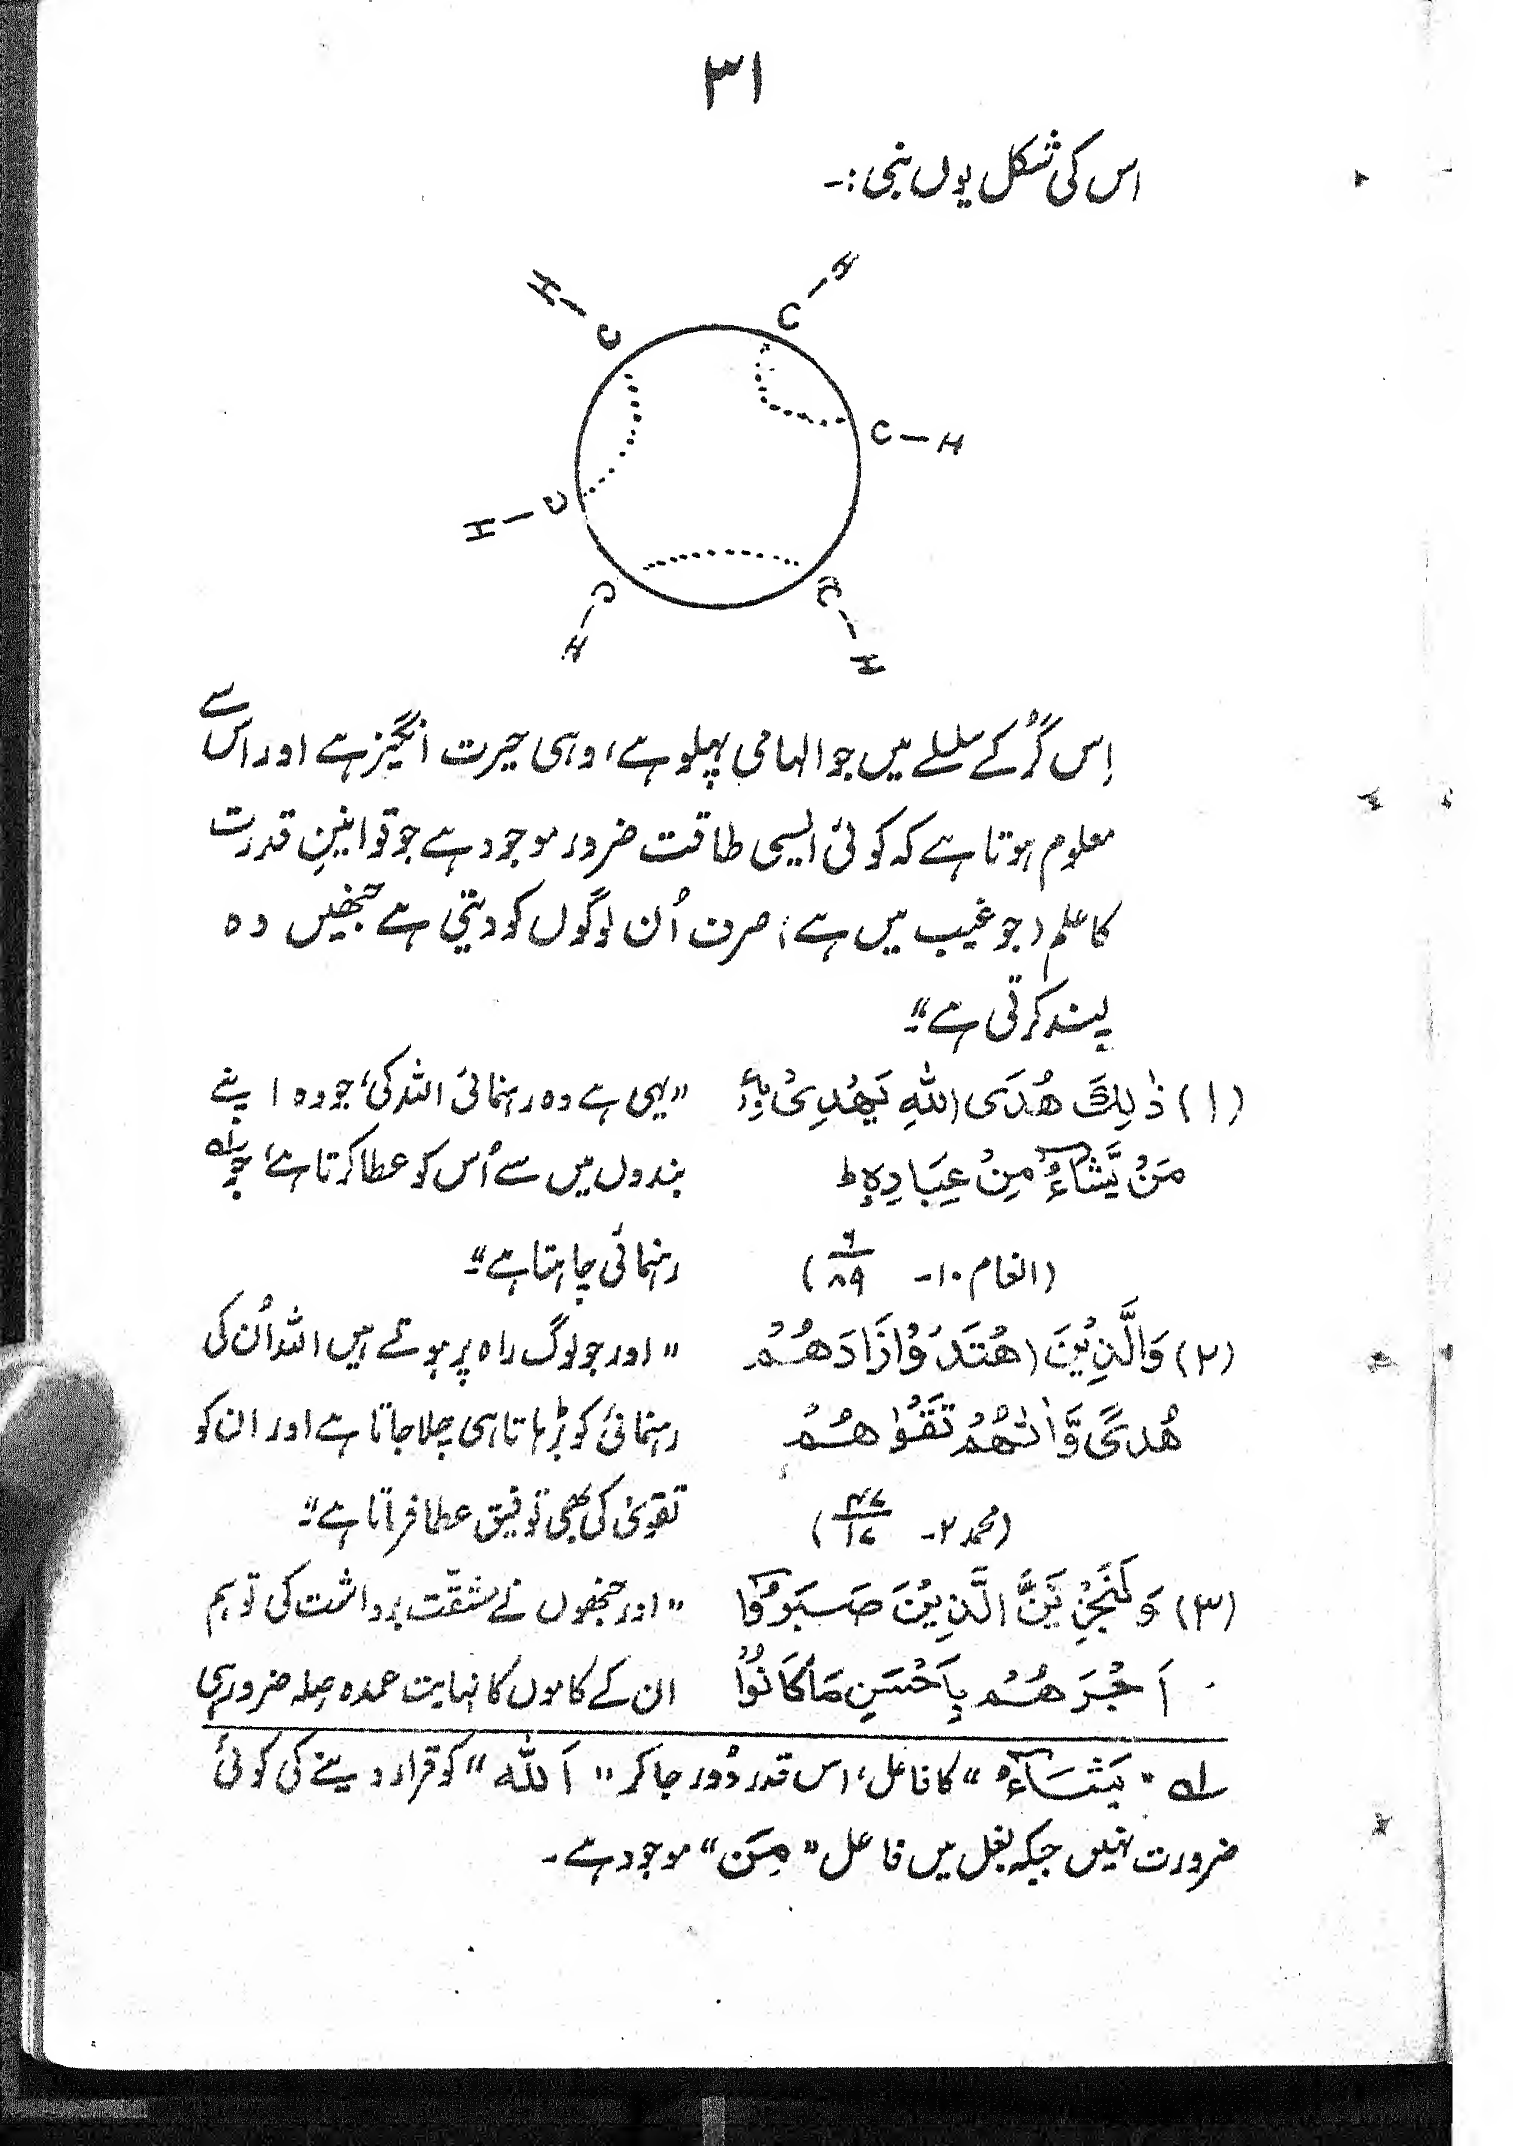 ۳۱
اس کی شکل یوں بنی :-
H
H
C
C
C — H
H — C
C
C
H
H
اِس گُر کے سلسلے میں جو الہامی پہلو ہے، وہی حیرت انگیز ہے اور اس سے
معلوم ہوتا ہے کہ کوئی ایسی طاقت ضرور موجود ہے جو قوانینِ قدرت
کا علم (جو غیب میں ہے) صرف اُن لوگوں کو دیتی ہے جنھیں وہ
پسند کرتی ہے"۔
(۱) ذٰلِكَ هُدَى اللهِ يَهْدِىْ بِهٖ
مَنْ يَّشَآءُ مِنْ عِبَادِهٖ ط
(انعام ۱۰- ۶/۸۹)
"یہی ہے وہ رہنمائی اللہ کی، جو وہ اپنے
بندوں میں سے اُس کو عطا کرتا ہے، جو ۱؎
رہنمائی چاہتا ہے"۔
(۲) وَالَّذِيْنَ اهْتَدَوْا زَادَهُمْ
هُدًى وَّاٰتٰهُمْ تَقْوٰهُمْ
(محمد ۲- ۴۷/۱۷)
"اور جو لوگ راہ پر ہوتے ہیں اللہ اُن کی
رہنمائی کو بڑہاتا ہی چلا جاتا ہے اور ان کو
تقویٰ کی بھی توفیق عطا فرماتا ہے"۔
(۳) وَلَنَجْزِيَنَّ الَّذِيْنَ صَبَرُوْٓا
اَجْرَهُمْ بِاَحْسَنِ مَا كَانُوْا
"اور جنھوں نے مشقّت برداشت کی تو ہم
ان کے کاموں کا نہایت عمدہ صلہ ضرور ہی
۱؎ "يَشَآءُ" کا فاعل، اس قدر دُور جا کر "اَللہ" کو قرار دینے کی کوئی
ضرورت نہیں جبکہ بغل میں فاعل "مَن" موجود ہے۔